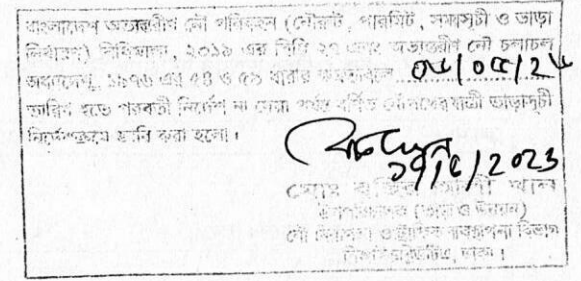 বাংলাদেশ অভ্যন্তরীণ নৌ পরিবহন (নৌরুট, পারমিট, সময়সূচী ও ভাড়া
নির্ধারণ) বিধিমালা, ২০১৯ এর বিধি ২৭ এবং অভ্যন্তরীণ নৌ চলাচল
অধ্যাদেশ, ১৯৭৬ এর ৫৪ ও ৫৯ ধারার ক্ষমতাবলে
তারিখ হতে পরবর্তী নির্দেশ না দেয়া পর্যন্ত বর্ণিত নৌপথের যাত্রী ভাড়াসূচী
নির্দেশক্রমে জারি করা হলো।
2023
মোঃ আলী খান
(ভাড়া ও উন্নয়ন)
নৌ নিরাপত্তা ও ট্রাফিক ব্যবস্থাপনা বিভাগ
বিআইডব্লিউটিএ, ঢাকা।